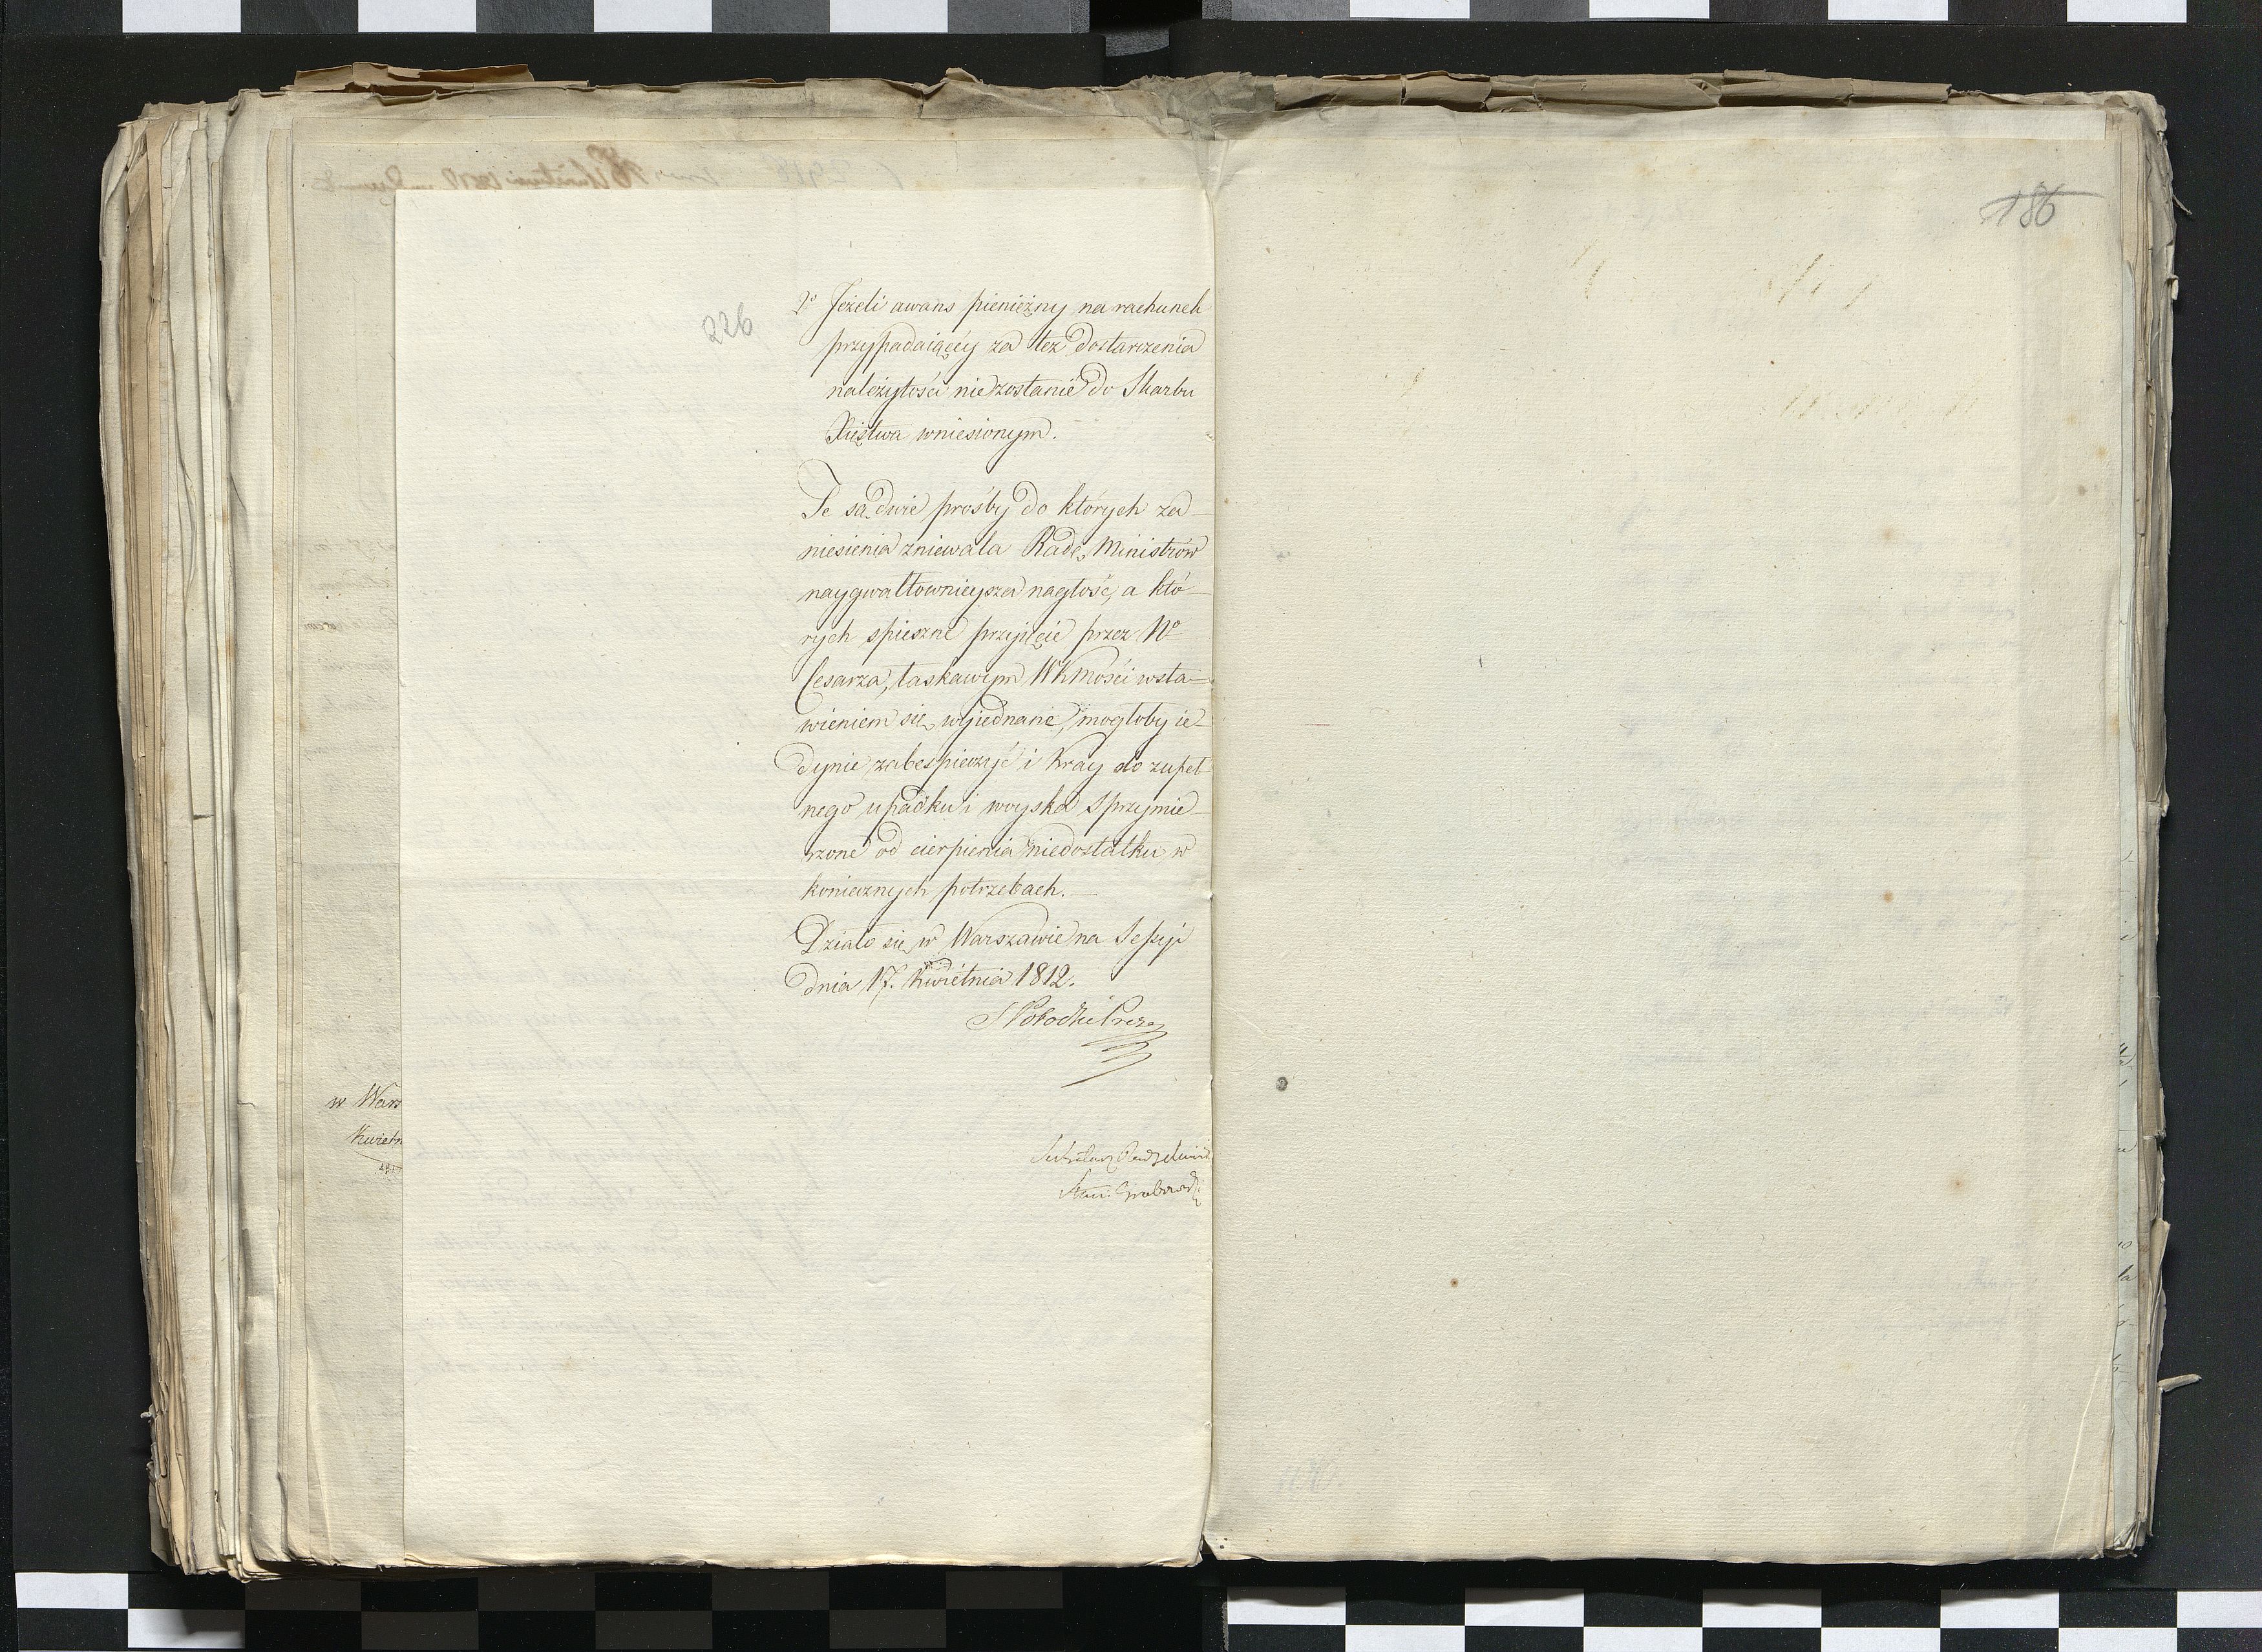 226
2º Jeżeli awans pieniężny na rachunek
przypadaiącéy za też dostarczenia
należytości nie zostanie do Skarbu
Xięstwa wniesionym.
Te są dwie prośby do których za-
niesienia zniewala Radę Ministrów
naygwałtownieysza nagłość, a któ-
rych spieszne przyięcie przez Nº
Cesarza, łaskawym WKMości wsta-
wieniem się wyiednane, mogłoby ie-
dynie zabespieczyć i Kray do zupeł-
nego upadku i woyska Sprzymie-
rzone od cierpienia niedostatku w
koniecznych potrzebach. —
Działo się w Warszawie na Sessyi
dnia 17. Kwietnia 1812.
S Potocki Prezes
Sekretarz Rady
Stan: Grabowski
w Wars
Kwietn
186